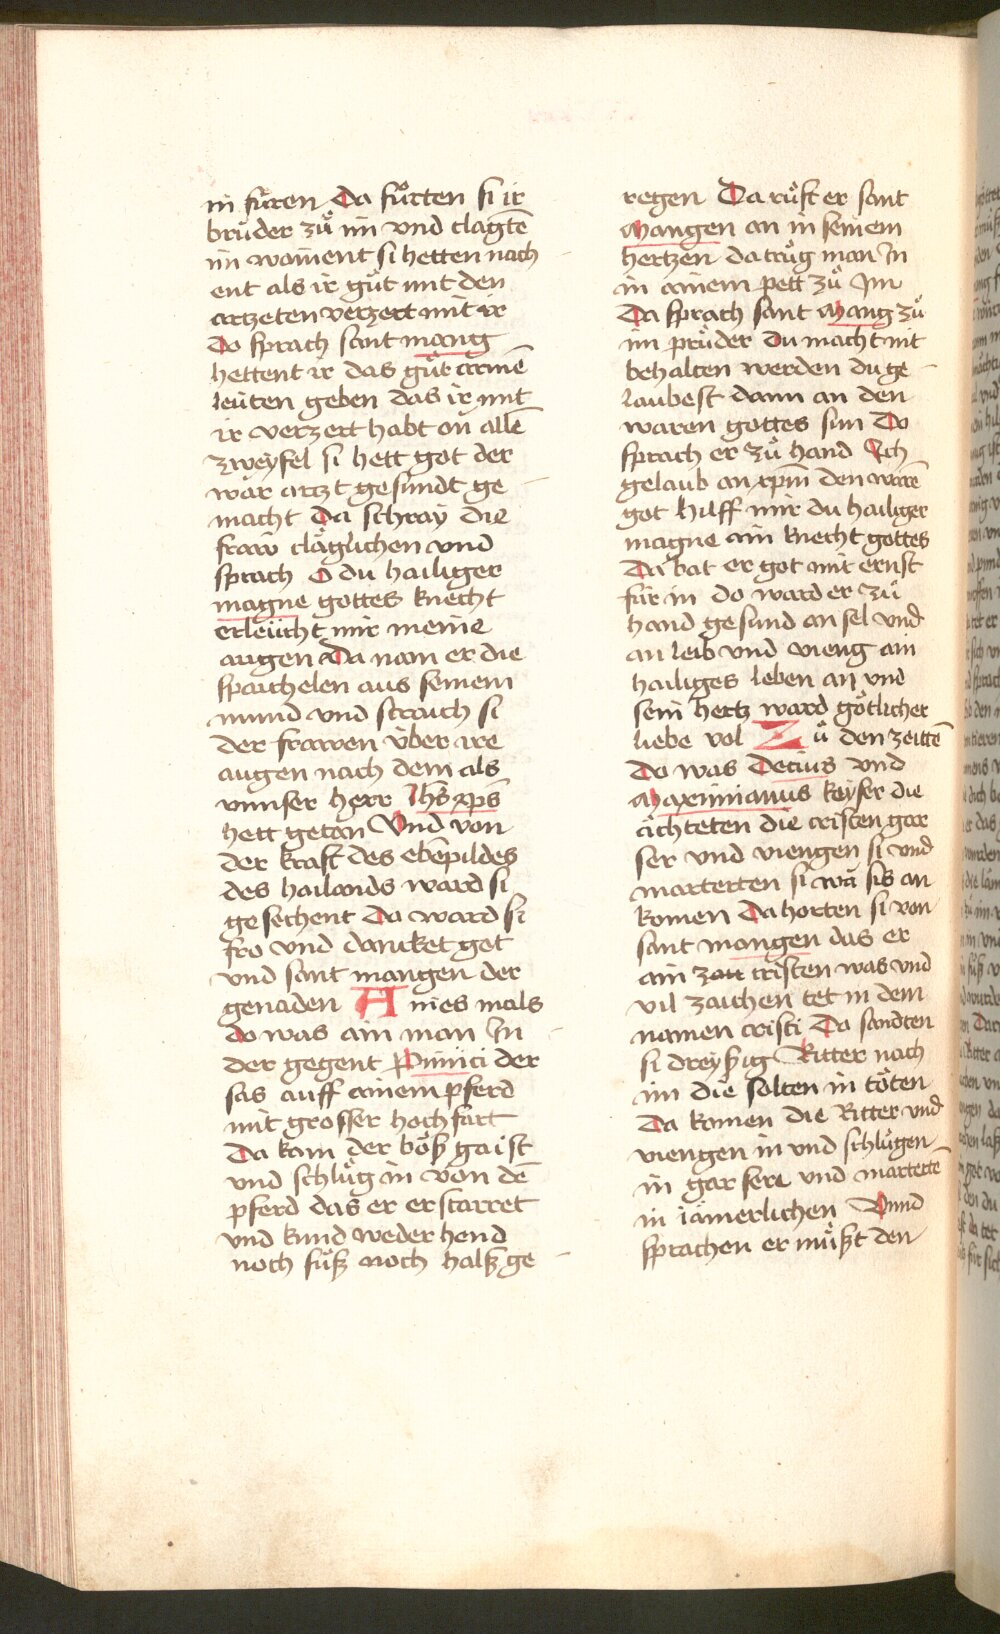 in füren Da fuͦrten si ir
bruͤder zuͦ im und clagtē
im wainent si hetten nach
ent als ir guͦt mit den
artzeten verzert mit ir
Do sprach sant mang
hettent ir das guͦt armē
leüten geben das ir mit
ir verzert habt on allē
zweyfel si hett got der
war artzt gesundt ge
macht Da schray die
fraw cläglichen und
sprach O du hailiger
magne gottes knecht
erleücht mir meine
augen Da nam er die
spaichelen aus seinem
mund und straich si
der frawen über ire
augen nach dem als
vnnser herr Jhs xp̄s
hett getan Und von
der kraft des ebēpildes
des hailands ward si
gesechent Da ward si
fro und dancket got
und sant mangen der
genaden Aines mals
do was ain man In
der gegent Piminici der
sas auff ainem pferd
mit grosser hochfart
Da kam der böß gaist
und schluͦg in von dē
pferd das er erstarret
und kund weder hend
noch fuͤß noch halß ge
regen Da ruͦft er sant
Mangen an in seinem
hertzen da truͦg man In
in ainem pett zuͦ Im
Da sprach sant Mang zuͦ
im pruͦder Du macht nit
behalten werden du ge
laubest dann an den
waren gottes sun Do
sprach er zuͦ hand Ich
gelaub an xp̄m den warē
got hilff mir du hailiger
magne ain knecht gottes
Da bat er got mit ernst
für in do ward er zuͦ
hand gesund an sel und
an leib und vieng ain
hailiges leben an und
sein hertz ward götlicher
liebe vol Zuͦ den zeittē
Do was Decius und
Maximianus keyser die
ächteten die cristen gar
ser und viengen si und
marterten si wa sis an
komen Da horten si von
sant mangen das er
ain cristen was und
vil zaichen tet in dem
namen cristi Da sandten
si dreyßig Ritter nach
im die solten in töten
Da komen die Ritter und
viengen in und schluͦgen
in gar sere und martertē
in iämerlichen Vnnd
sprachen er muͤßt den